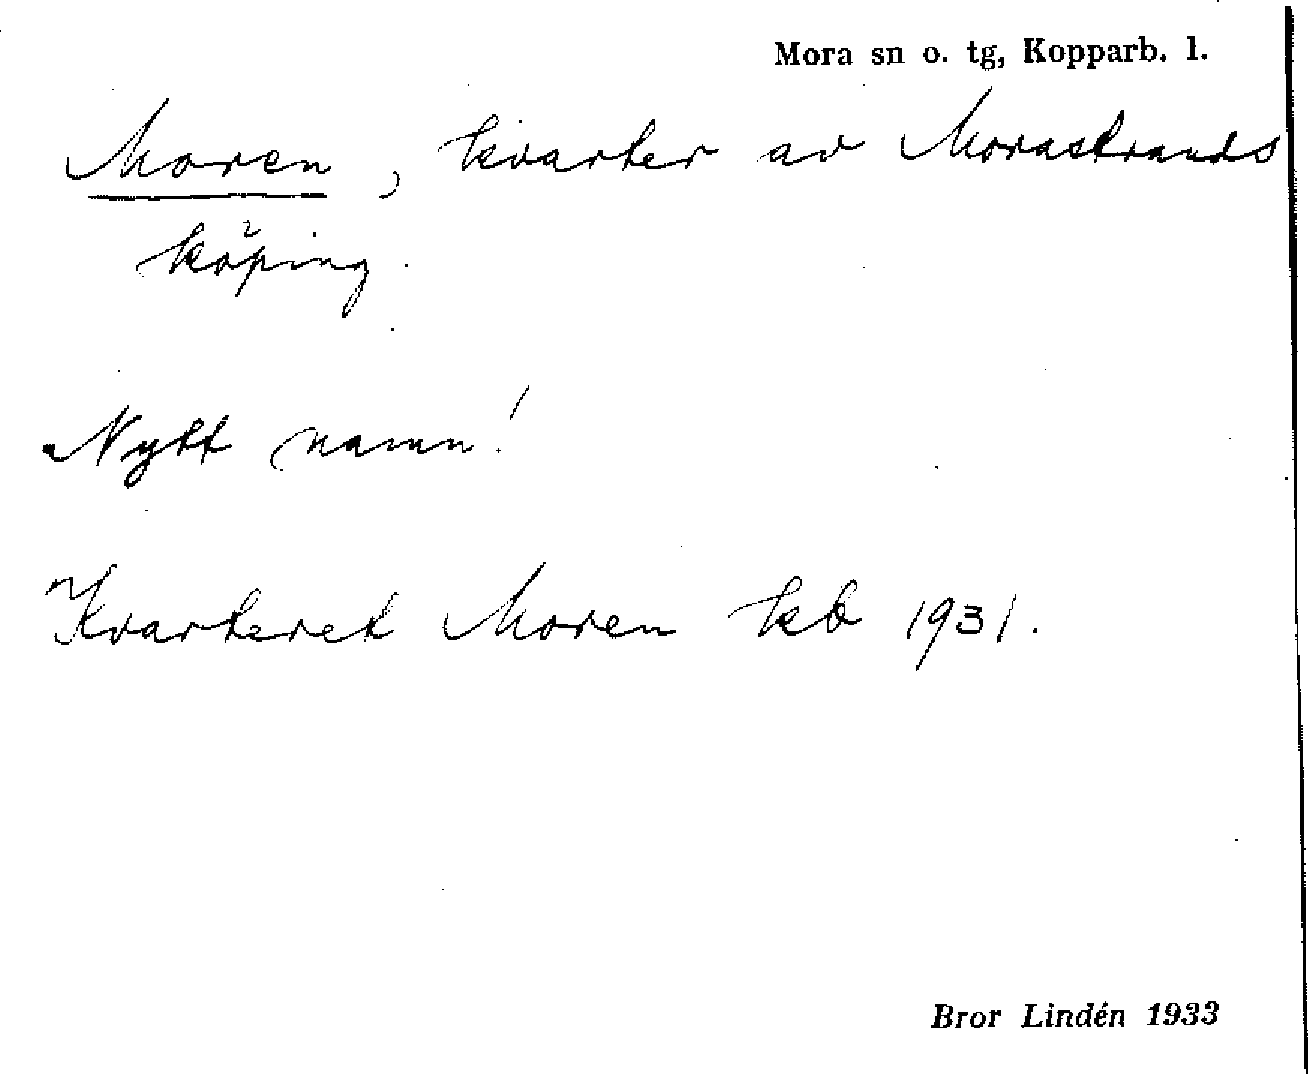 Mora sn o. tg, Kopparb. l.
Moren, kvarter av Morastrands
köping.
Nytt namn!
Kvarteret Moren kb 1931.
Bror Lindén 1933